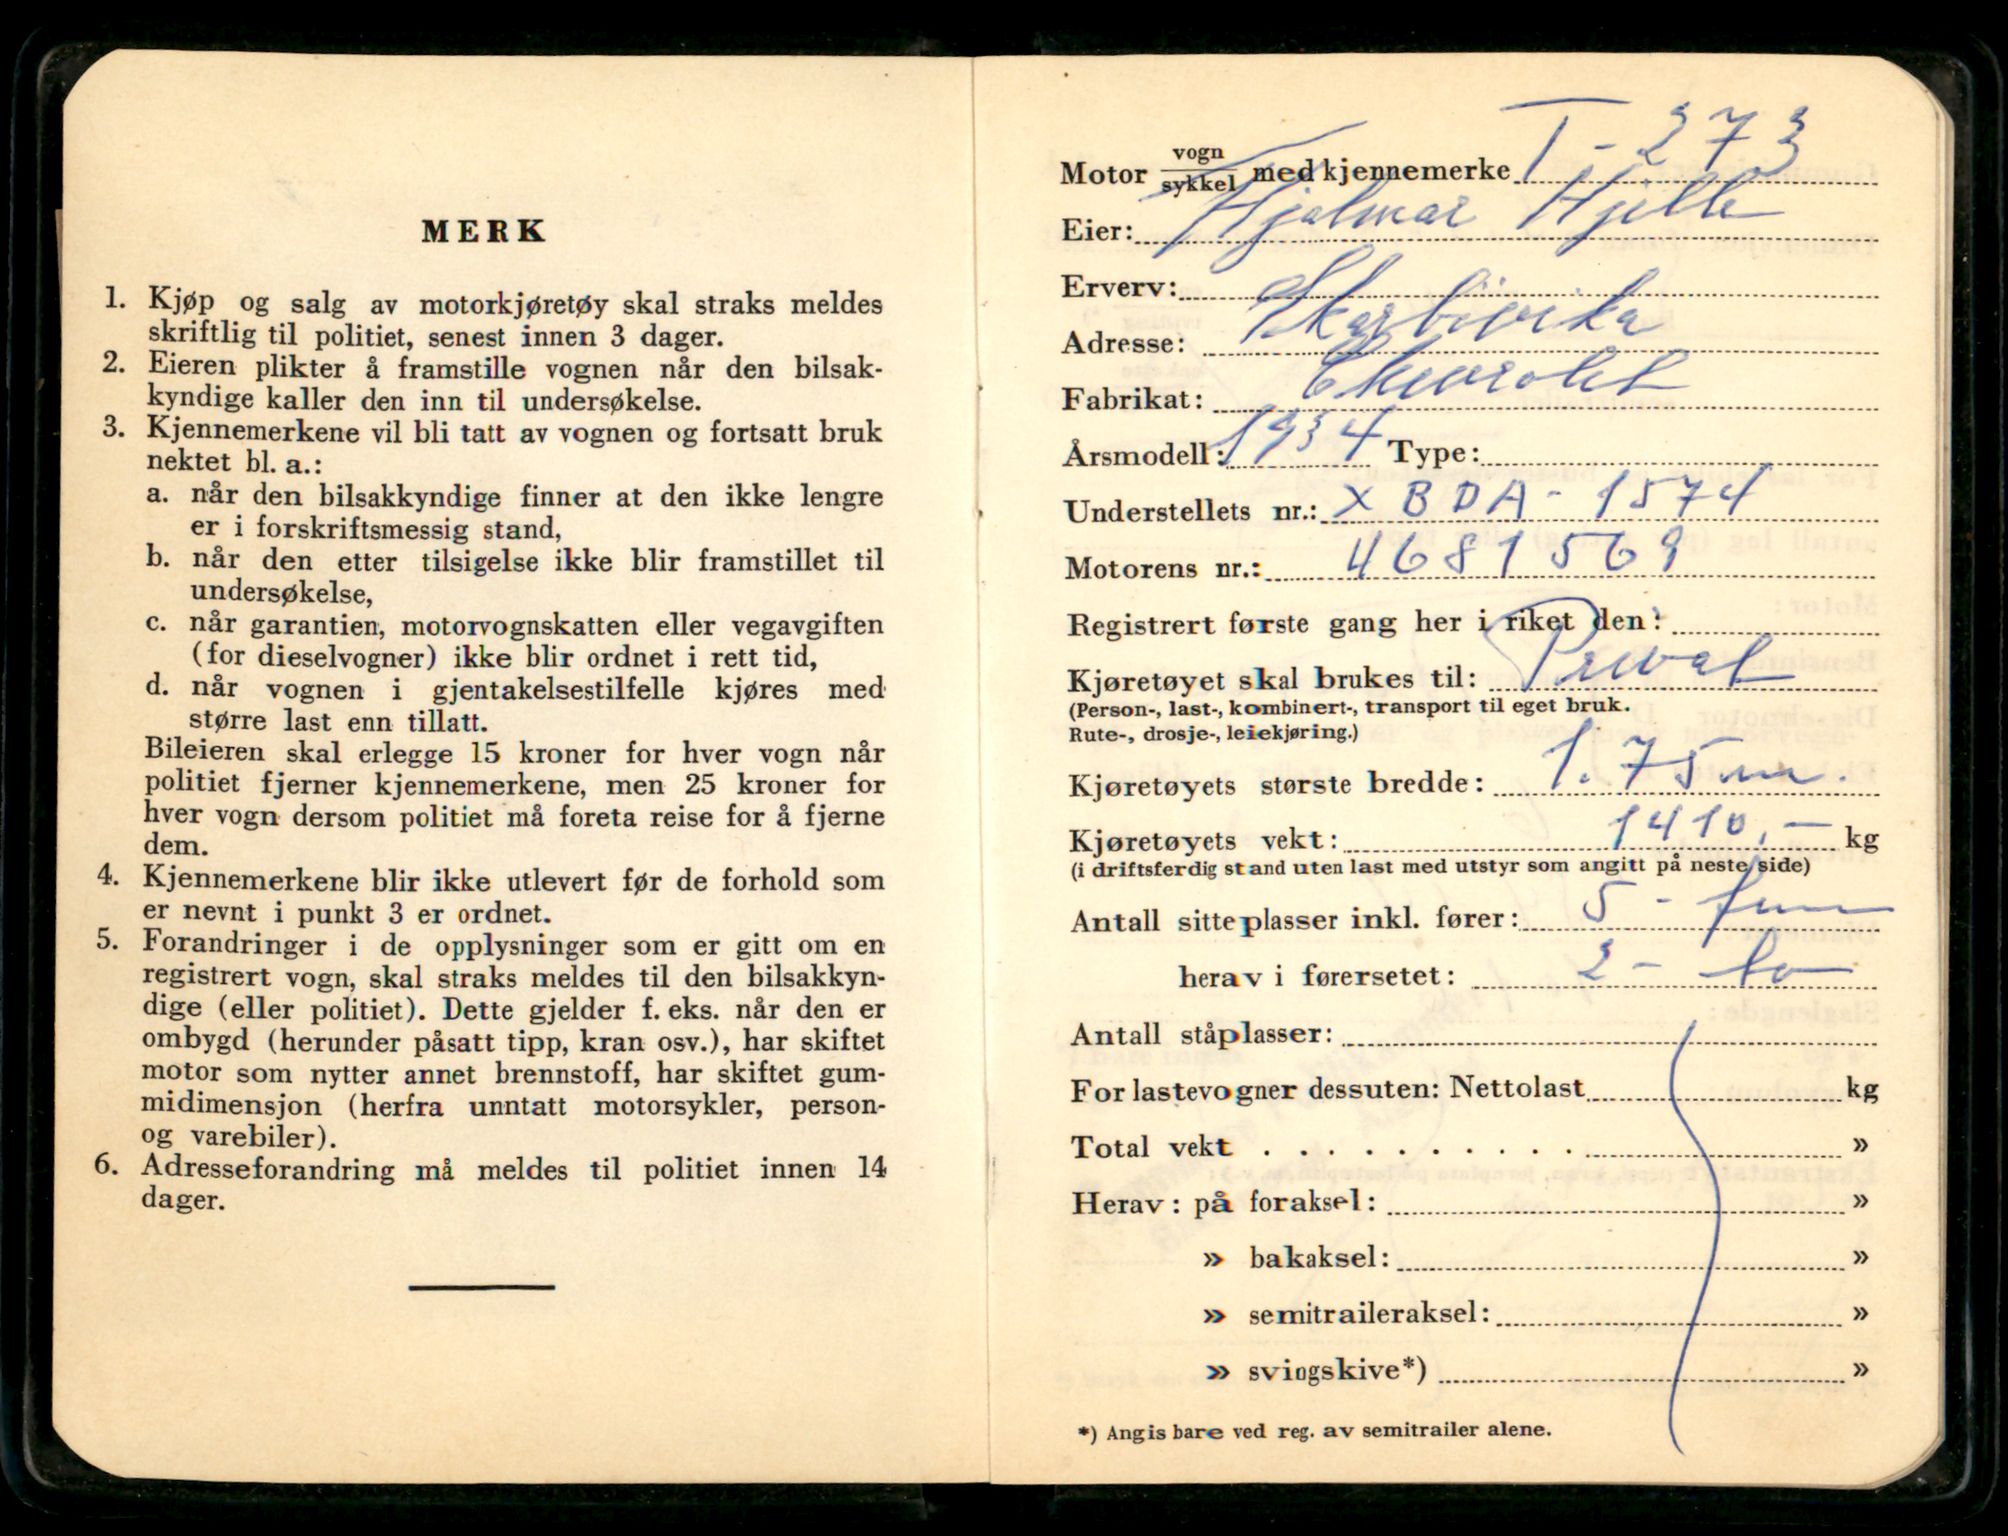 MERK
1. Kjøp og salg av motorkjøretøy skal straks meldes
skriftlig til politiet, senest innen 3 dager.
2. Eieren plikter å framstille vognen når den bilsak-
kyndige kaller den inn til undersøkelse.
3. Kjennemerkene vil bli tatt av vognen og fortsatt bruk
nektet bl. a.:
a. når den bilsakkyndige finner at den ikke lengre
er i forskriftsmessig stand,
b. når den etter tilsigelse ikke blir framstillet til
undersøkelse,
c. når garantien, motorvognskatten eller vegavgiften
(for dieselvogner) ikke blir ordnet i rett tid,
d. når vognen i gjentakelsestilfelle kjøres med
større last enn tillatt.
Bileieren skal erlegge 15 kroner for hver vogn når
politiet fjerner kjennemerkene, men 25 kroner for
hver vogn dersom politiet må foreta reise for å fjerne
dem.
4. Kjennemerkene blir ikke utlevert før de forhold som
er nevnt i punkt 3 er ordnet.
5. Forandringer i de opplysninger som er gitt om en
registrert vogn, skal straks meldes til den bilsakkyn-
dige (eller politiet). Dette gjelder f. eks. når den er
ombygd (herunder påsatt tipp, kran osv.), har skiftet
motor som nytter annet brennstoff, har skiftet gum-
midimensjon (herfra unntatt motorsykler, person-
og varebiler).
6. Adresseforandring må meldes til politiet innen 14
dager.
Motor vogn/sykkel med kjennemerke T-273
Eier: Hjalmar Hjelle
Erverv:
Adresse: Skarbøvika
Fabrikat: Chevrolet
Årsmodell: 1934 Type:
Understellets nr.: X BDA-1574
Motorens nr.: 4681569
Registrert første gang her i riket den:
Kjøretøyet skal brukes til: Privat
(Person-, last-, kombinert-, transport til eget bruk.
Rute-, drosje-, leiekjøring.)
Kjøretøyets største bredde: 1.75 m.
Kjøretøyets vekt: 1410,- kg
(i driftsferdig stand uten last med utstyr som angitt på neste side)
Antall sitteplasser inkl. fører: 5 - fem
herav i førersetet: 2 - to
Antall ståplasser:
For lastevogner dessuten: Nettolast kg
Total vekt . . . . . . . . . . »
Herav: på foraksel: »
» bakaksel: »
» semitraileraksel: »
» svingskive*) »
*) Angis bare ved reg. av semitrailer alene.